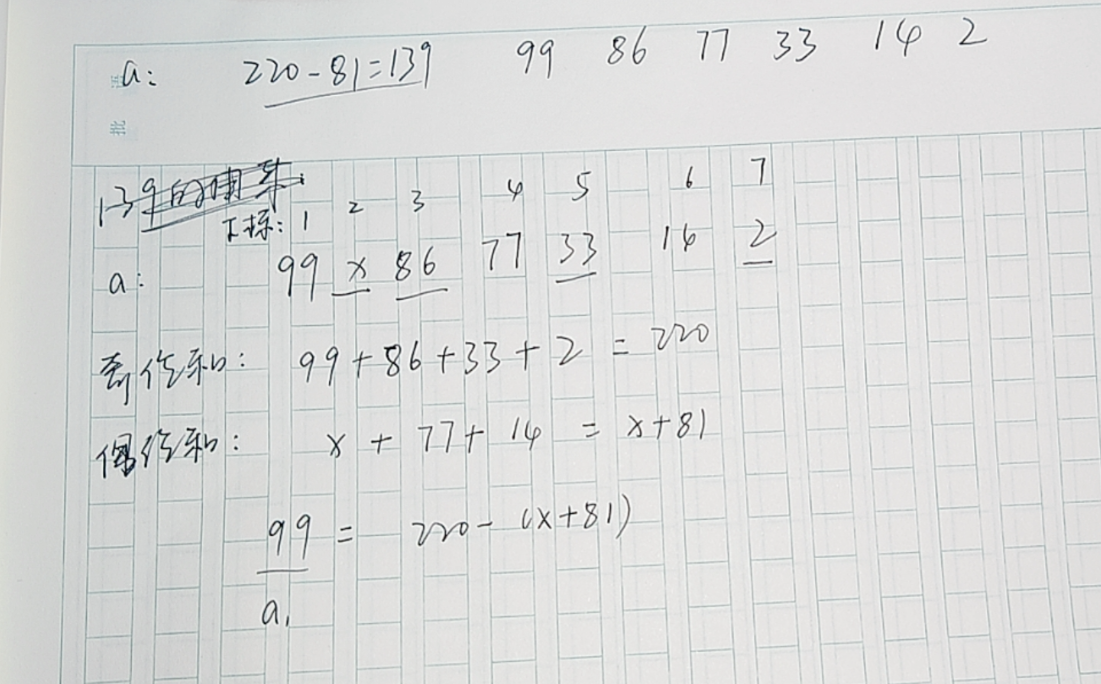 a: 220-81=139 99 86 77 33 14 2
139的因率:
下标: 1 2 3 4 5 6 7
a: 99 x 86 77 33 14 2
奇位和: 99+86+33+2 = 220
偶位和: x + 77+ 14 = x+81
99 = 220- (x+81)
a₁